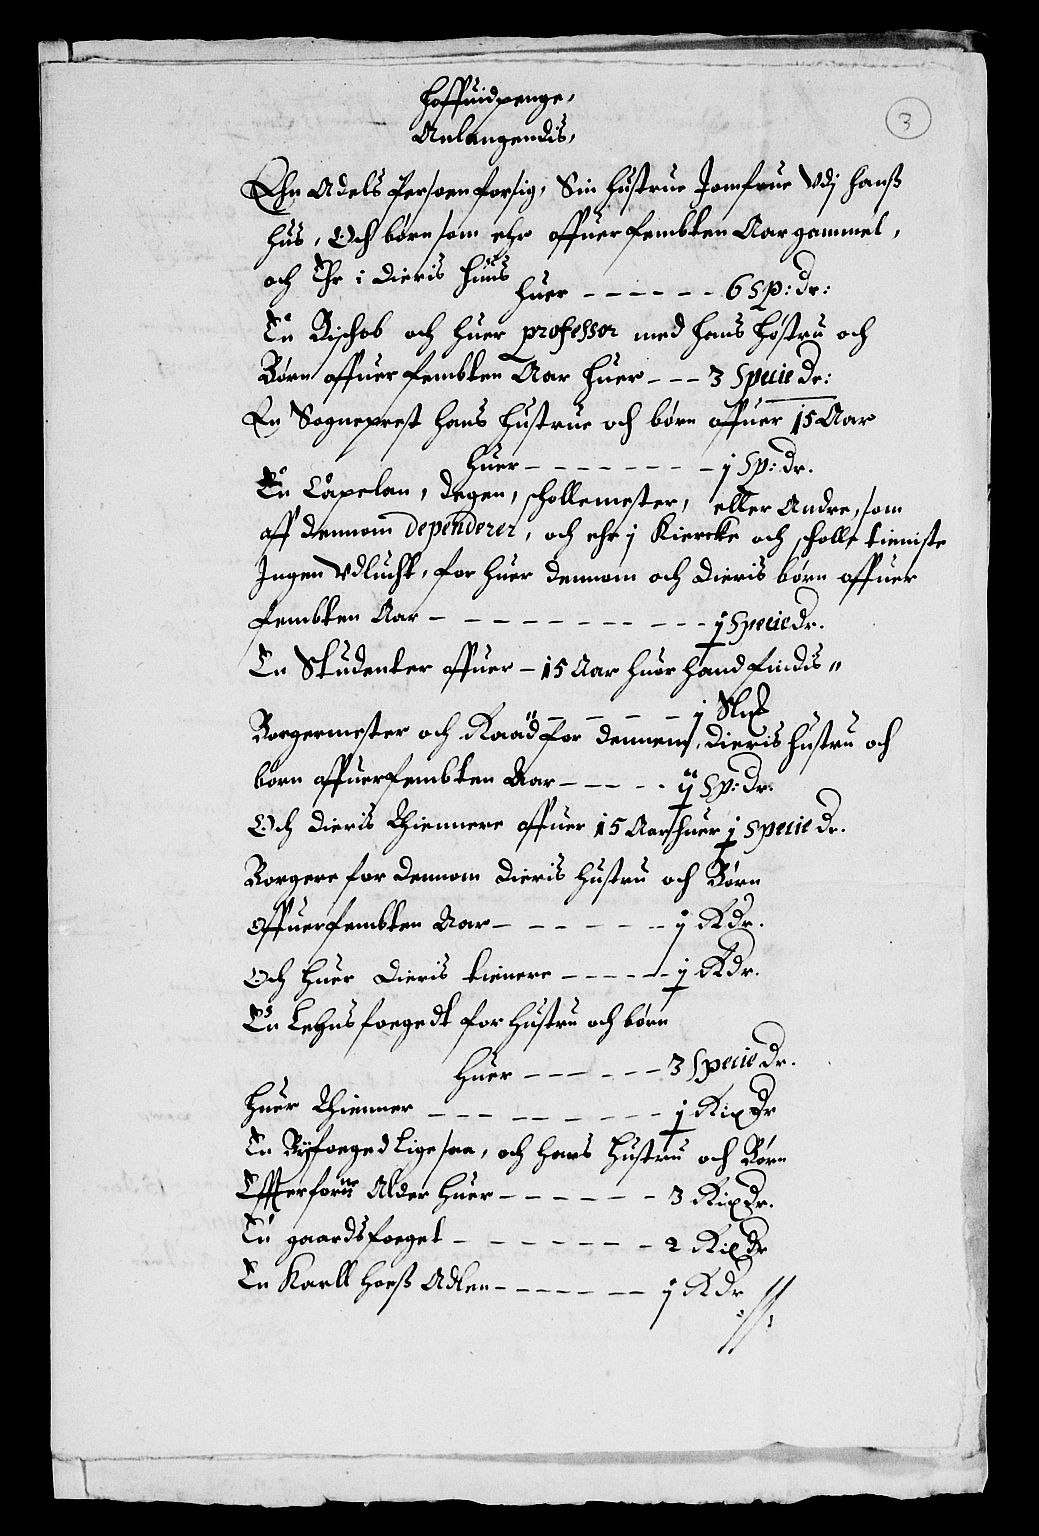 3
Hoffuidpenge,
Anlangendis,
Ehn Adels Persoen for sig, Sin hustrue Jomfrue Vdj hanß
hus, Och børn som ehr offuer fembten Aar gammel,
och Ehr i dieris huus
huer - - - - - - 6 Sp: dr:
En Bischob och huer professor med hans høstru och
Børn offuer fembten Aar huer - - - 3 Specie dr:
En Sogneprest hans hustrue och børn offuer 15 Aar
huer - - - - - - - - j Sp: dr.
En Capelan, degen, schollemester, eller Andre, som
aff dennom dependerer, och ehr j Kiercke och scholle tieniste
Ingen Vdlucht, for huer dennom och dieris børn offuer
fembten Aar - - - - - - - - - - j Specie dr.
En Studenter offuer - 15 Aar huor hand findis "
- - - - j
Borgermester och Raad for dennem, dieris hustru och
børn offuer fembten Aar - - - - - ij Sp: dr.
Och dieris Thiennere offuer 15 Aar huer j Specie dr.
Borgere for dennom dieris hustru och Børn
offuer fembten Aar - - - - - - j Rdr.
Och huer dieris tienere - - - - - j Rdr.
En Lehns foegedt for hustru och børn
huer - - - - - - 3 Specie dr.
huer Thienner - - - - - - - - - j Rix Dr
En Byfoeged lige saa, och hans hustru och Børn
Effter forne Alder huer - - - - - - 3 Rix Dr.
En gaardsfoeget - - - - - - - - 2 Rix Dr
En Karll hoeß Adlen - - - - - - - j Rdr